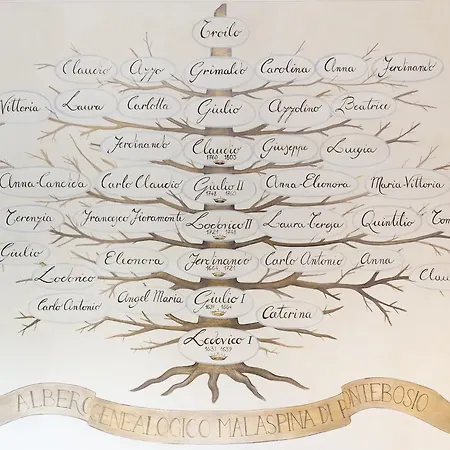 Troilo
Claudio Azzo Grimaldo Carolina Anna Ferdinando
Vittoria Laura Carlotta Giulio Azzolino Beatrice
Ferdinando Claudio Giuseppe Luigia
1760 1803
Anna-Candida Carlo Claudio Giulio II Anna-Eleonora Maria-Vittoria
Terenzia Francesco Fioramonte Lodovico II Laura Teresa Quintilio Tom
Giulio Eleonora Ferdinando Carlo Antonio Anna
1664 1721
Lodovico Claud
Carlo Antonio Angel Maria Giulio I Caterina
Lodovico I
ALBERO GENEALOGICO MALASPINA DI FONTEBOSIO